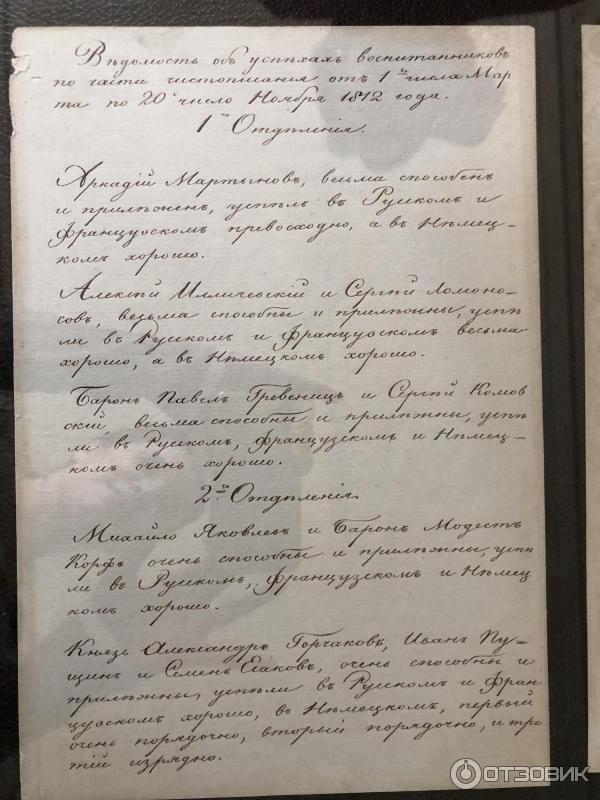 Вѣдомость объ успѣхахъ воспитанниковъ
по части чистописанія отъ 1го числа Мар
та по 20е число Ноября 1812 года.
1го Отдѣленія.
Аркадій Мартыновъ, весьма способенъ
и прилѣженъ, успѣлъ въ Рускомъ и
Французскомъ превосходно, а въ Нѣмец-
комъ хорошо.
Алексѣй Илличевскій и Сергѣй Ломоно-
совъ, весьма способны и прилѣжны, успѣ
ли въ Рускомъ и Французскомъ весьма
хорошо, а въ Нѣмецкомъ хорошо.
Баронъ Павелъ Гревеницъ и Сергѣй Комов
скій, весьма способны и прилѣжны, успѣ
ли въ Рускомъ, Французскомъ и Нѣмец-
комъ очень хорошо.
2го Отдѣленія.
Михайло Яковлевъ и Баронъ Модестъ
Корфъ очень способны и прилѣжны, успѣ
ли въ Рускомъ, Французскомъ и Нѣмец
комъ хорошо.
Князь Александръ Горчаковъ, Иванъ Пу-
щинъ и Семенъ Есаковъ, очень способны и
прилѣжны, успѣли въ Рускомъ и Фран
цузскомъ хорошо, въ Нѣмецкомъ, первый
очень порядочно, вторый порядочно, и тре
тій изрядно.
ОТЗОВИК